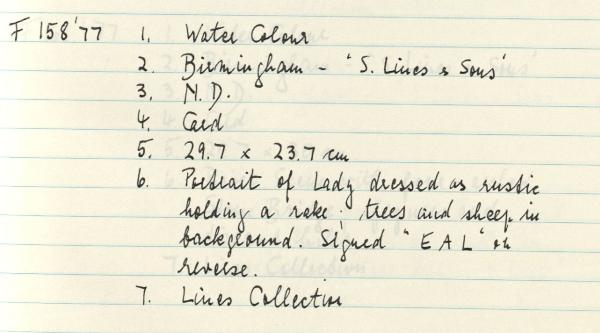 F 158'77 1. Water Colour
2. Birmingham - 'S. Lines & Sons'
3. N.D.
4. Card
5. 29.7 x 23.7 cm
6. Portrait of Lady dressed as rustic
holding a rake; trees and sheep in
background. Signed "EAL" on
reverse.
7. Lines Collection